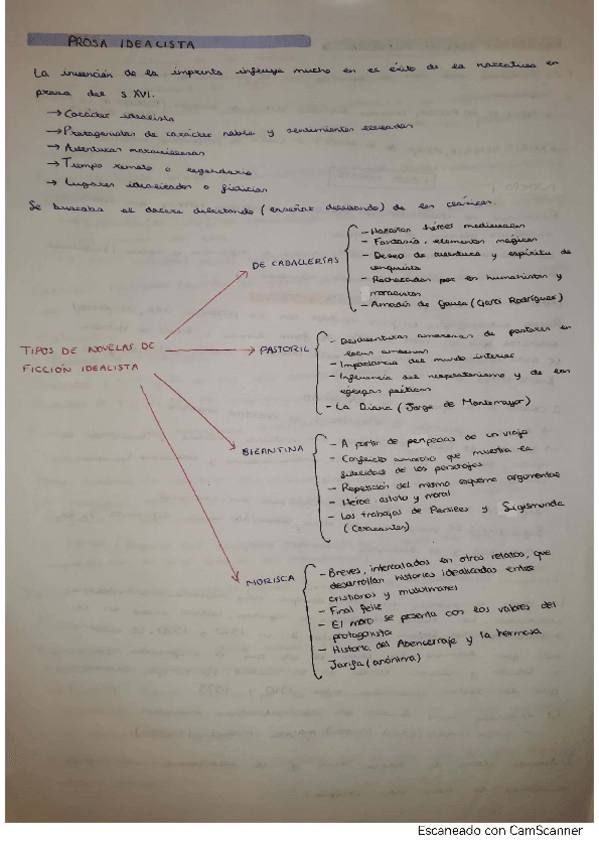 PROSA IDEALISTA
La invención de la imprenta influye mucho en el éxito de la narrativa en
prosa del s XVI.
→ Carácter idealista
→ Protagonistas de carácter noble y sentimientos elevados
→ Aventuras maravillosas
→ Tiempo remoto o legendario
→ Lugares idealizados o ficticios
Se buscaba el docere delectando (enseñar deleitando) de los clásicos.
TIPOS DE NOVELAS DE
FICCIÓN IDEALISTA
DE CABALLERÍAS
- Hazañas héroes medievales
- Fantasía, elementos mágicos
- Deseo de aventura y espíritu de
conquista
- Rechazadas por los humanistas y
moralistas
- Amadís de Gaula (Garci Rodríguez)
PASTORIL
- Desventuras amorosas de pastores en
locus amoenus
- Importancia del mundo interior
- Influencia del neoplatonismo y de las
églogas poéticas
- La Diana (Jorge de Montemayor)
BIZANTINA
- A partir de peripecias de un viaje
- Conflicto amoroso que muestra la
fidelidad de los personajes
- Repetición del mismo esquema argumental
- Héroe astuto y moral
- Los trabajos de Persiles y Sigismunda
(Cervantes)
MORISCA
- Breves, intercalados en otros relatos, que
desarrollan historias idealizadas entre
cristianos y musulmanes
- Final feliz
- El moro se presenta con los valores del
protagonista
- Historia del Abencerraje y la hermosa
Jarifa (anónima)
Escaneado con CamScanner